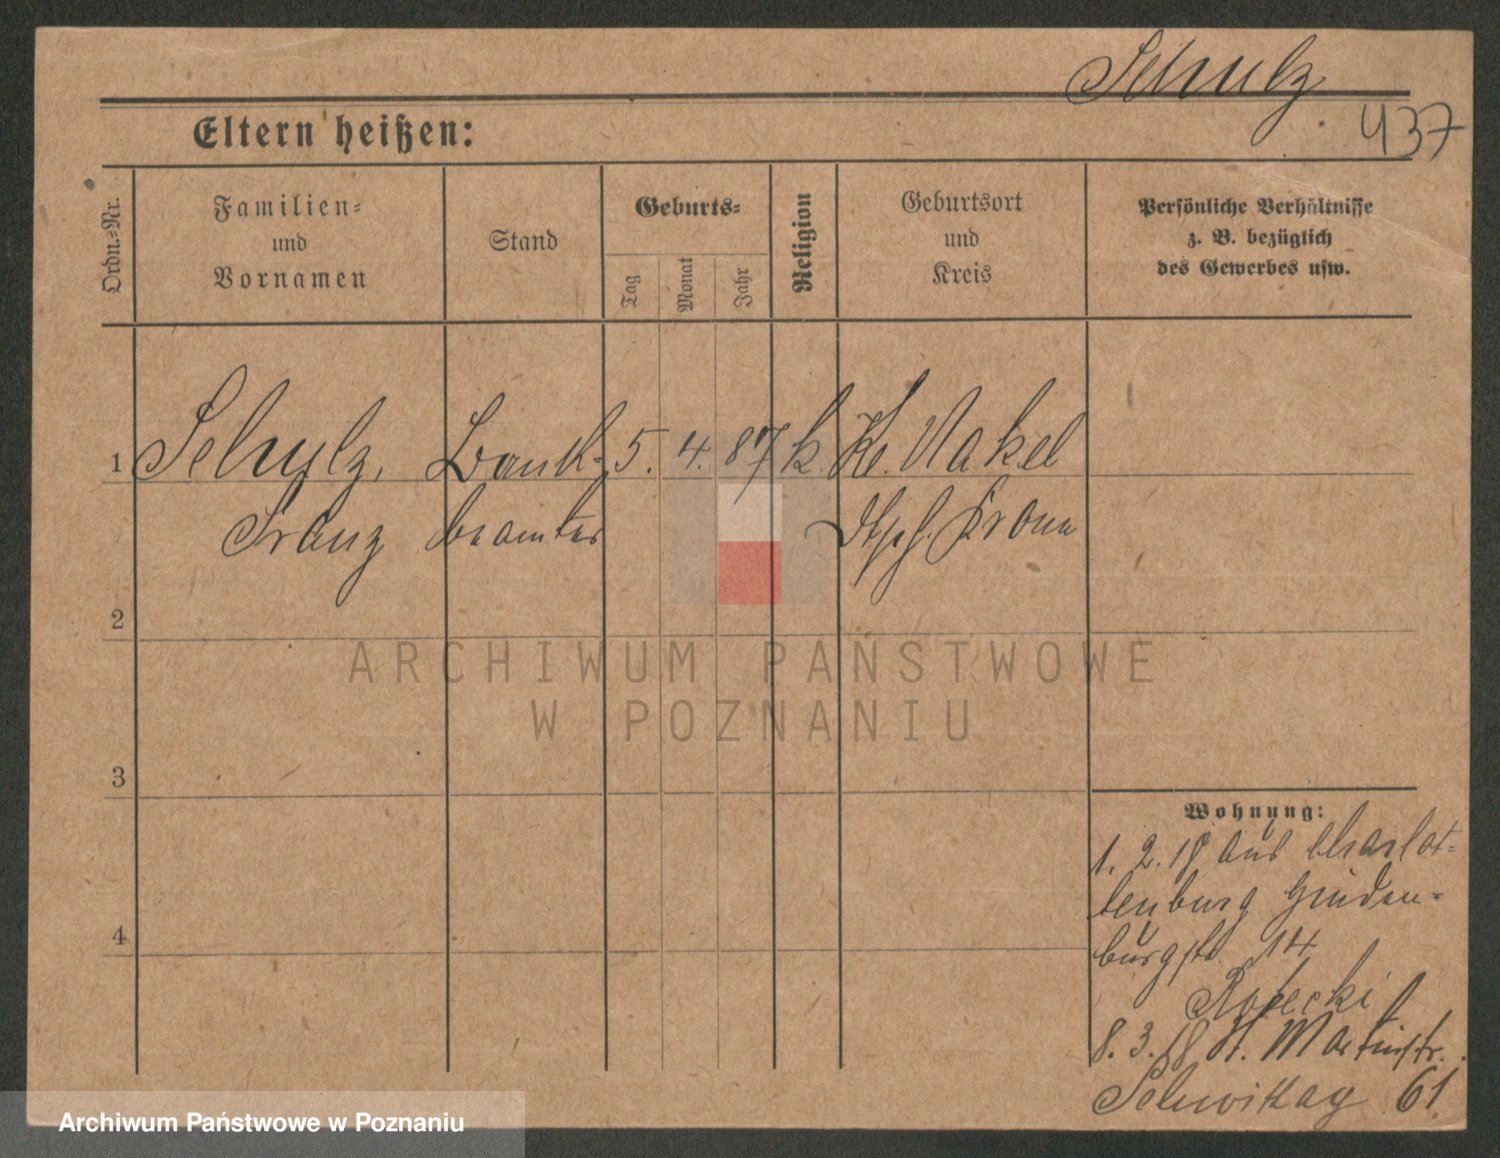 Schulz
437
Eltern heißen:
Ordn.=Nr.
Familien=
und
Vornamen
Stand
Geburts=
Tag
Monat
Jahr
Religion
Geburtsort
und
Kreis
Persönliche Verhältnisse
z. B. bezüglich
des Gewerbes usw.
1 Schulz, Bank= 5. 4. 87 k. Kl. Nakel
Franz beamter Dtsch. Krone
2
3
4
Wohnung:
1. 2. 18 aus Charlot=
tenburg Hinden=
burgstr. 14
8. 3. 18 St. Martinstr.
61
ARCHIWUM PAŃSTWOWE
W POZNANIU
Archiwum Państwowe w Poznaniu